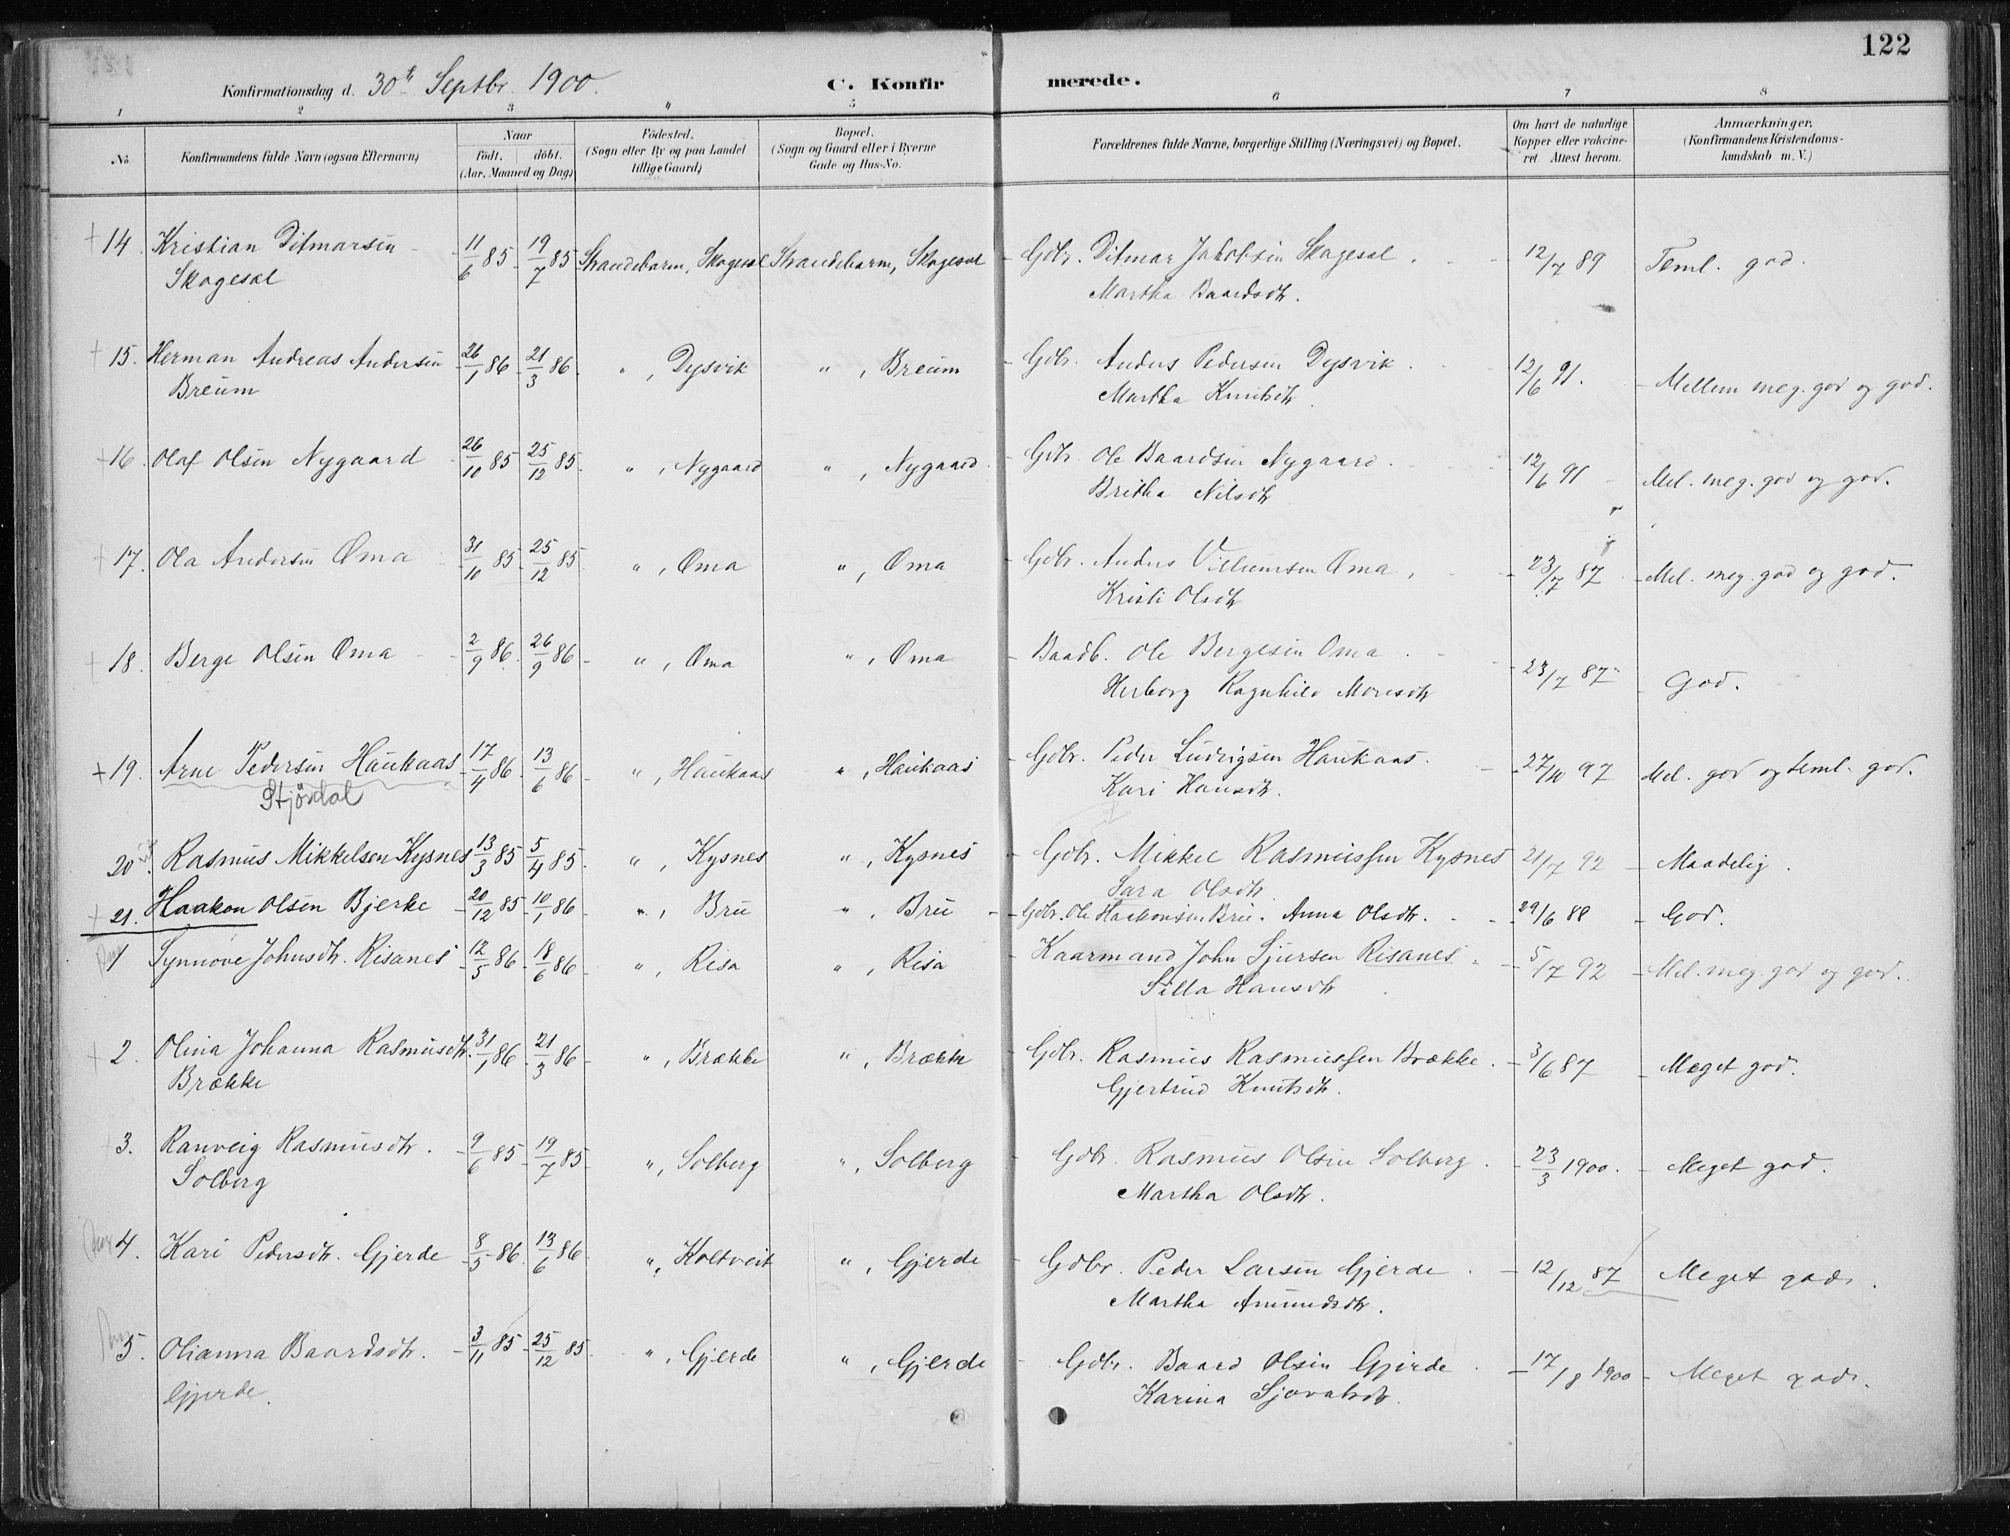 122
Konfirmationsdag d. 30te Septbr. 1900. C. Konfirmerede.
1 2 3 " 5 6 7 8
No. Konfirmandens fulde Navn (ogsaa Efternavn) Naar födt. döbt. (Aar, Maaned og Dag) Födested. (Sogn eller By og paa Landet tillige Gaard) Bopæl. (Sogn og Gaard eller i Byerne Gade og Hus-No. Forældrenes fulde Navne, borgerlige Stilling (Næringsvei) og Bopæl. Om havt de naturlige Kopper eller vakcineret. Attest herom. Anmærkninger. (Konfirmandens Kristendomskundskab m. V.)
14. Kristian Ditmarsen 11/6 85 19/7 85 Strandebarm, Skogesal Strandebarm, Skogesal Gdbr. Ditmar Jakobsen Skogesal 12/7 89 Teml. god.
Skogesal Martha Baardsdtr.
15. Herman Andreas Andersen 26/1 86 21/3 86 ", Dysvik ", Breum Gdbr. Anders Pedersen Dysvik 12/6 91. Mellem meg. god og god.
Breum Martha Knutsdtr.
16. Olaf Olsen Nygaard 26/10 85 25/12 85 ", Nygaard ", Nygaard Gdbr. Ole Baardsen Nygaard 12/6 91 Mel. meg. god og god.
Britha Nilsdtr
17. Ola Andersen Oma 31/10 85 25/12 85 ", Oma ", Oma Gdbr. Anders Villumsen Oma 23/7 87 Mel. meg. god og god.
Kristi Olsdtr
18. Berge Olsen Oma 2/9 86 26/9 86 ", Oma ", Oma Baadb. Ole Bergesen Oma 23/7 87 God.
Herborg Ragnhild Monsdtr
19. Arne Pedersen Haukaas 17/4 86 13/6 86 ", Haukaas ", Haukaas Gdbr. Peder Ludvigsen Haukaas 27/10 97 Mel. god og teml. god.
Stjørdal Kari Hansdtr.
20. Rasmus Mikkelsen Kysnes 13/3 85 5/4 85. ", Kysnes ", Kysnes Gdbr. Mikkel Rasmussen Kysnes 21/7 92 Maadelig.
Sara Olsdtr
21. Haakon Olsen Bjerke 20/12 85 10/1 86 ", Bru ", Bru Gdbr. Ole Haakonsen Bru. Anna Olsdtr. 29/6 88 God.
1 Synnøve Johnsdtr. Risanes 12/5 86 18/6 86 ", Risa ", Risa Kaarmand John Sjursen Risanes 5/7 92 Mel. meg. god og god.
Silla Hansdtr
2. Olina Johanna Rasmusdtr. 31/1 86 21/3 86 ", Brække ", Brække Gdbr. Rasmus Rasmussen Brække 3/6 87 Meget god.
Brække Gjertrud Knutsdtr.
3. Ranveig Rasmusdtr. 9/6 85 19/7 85 ", Solberg ", Solberg Gdbr. Rasmus Olsen Solberg 23/3 1900. Meget god.
Solberg Martha Olsdtr.
4. Kari Pedersdtr. Gjerde 8/5 86. 13/6 86 ", Koltveit ", Gjerde Gdbr. Peder Larsen Gjerde 12/12 87 Meget god.
Martha Amundsdtr.
5. Olianna Baardsdtr. 3/11 85 25/12 85 ", Gjerde ", Gjerde Gdbr. Baard Olsen Gjerde 17/8 1900 Meget god.
Gjerde. Karina Sjovatsdtr.